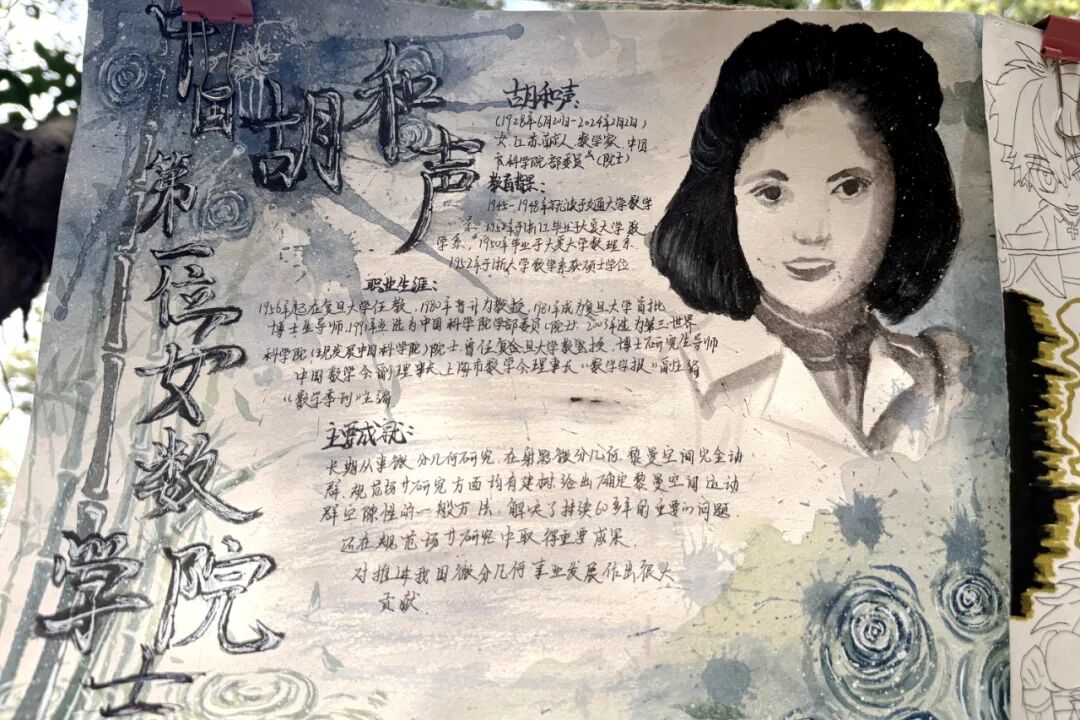 中国
胡和声
第一位女数学院士
胡和声:
(1928年6月20日-2024年2月2日)
女,江苏南京人,数学家,中国
科学院 委员(院士)
教育背景:
1945-1948年 就读于交通大学数学
系,1952年于浙江毕业于大夏大学数
学系,1950年毕业于大夏大学数理系.
1952年于浙大学数学系获硕士学位.
职业生涯:
1956年起在复旦大学任教,1980年晋升为教授,1981年成为复旦大学首批
博士生导师,1991年当选为中国科学院学部委员(院士),2003年选为第三世界
科学院(现发展中国科学院)院士.曾任复旦大学数学教授、博士研究生导师
中国数学会副理事长,上海市数学会理事长《数学学报》副主编
《数学季刊》主编
主要成就:
长期从事微分几何研究,在射影微分几何、黎曼空间完全运动
群、规范场研究方面均有建树,给出确定黎曼空间运动
群空隙性的一般方法,解决了持续60多年的重要的问题.
还在规范场研究中取得重要成果.
对推进我国微分几何事业发展作出很大
贡献.